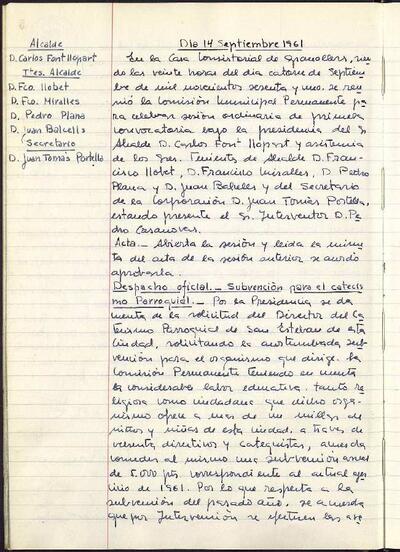 Alcalde
D. Carlos Font Llopart
Ttes. Alcalde
D. Fco. Llobet
D. Fco. Miralles
D. Pedro Plana
D. Juan Balcells
Secretario
D. Juan Tomàs Portella
Dia 14 Septiembre 1961
En la Casa Consistorial de Granollers, sien-
do las veinte horas del dia catorce de Septiem-
bre de mil novecientos sesenta y uno. se reu-
nió la Comisión Municipal Permanente pa-
ra celebrar sesión ordinaria de primera
convocatoria bajo la presidencia del Sr
Alcalde D. Carlos Font Llopart y asistencia
de los Sres. Tenientes de Alcalde D. Fran-
cisco Llobet, D. Francisco Miralles, D. Pedro
Plana y D. Juan Balcells y del Secretario
de la Corporación D. Juan Tomàs Portella,
estando presente el Sr. Interventor D. Pe-
dro Casanovas.
Acta. - Abierta la sesión y leida la minu-
ta del acta de la sesión anterior se acordó
aprobarla.
Despacho oficial. - Subvención para el catecis
mo Parroquial. - Por la Presidencia se da
cuenta de la solicitud del Director del Ca-
tecismo Parroquial de San Esteban de esta
Ciudad, solicitando la acostumbrada sub-
vención para el organismo que dirige. La
Comisión Permanente teniendo en cuenta
la considerable labor educativa, tanto re-
ligiosa como ciudadana que dicho orga-
nismo ofrece a mas de un millar de
niños y niñas de esta ciudad, a traves de
directivos y catequistas, acuerda
conceder al mismo una subvención anual
de 5.000 pts. correspondiente al actual ejer-
cicio de 1961. Por lo que respecta a la
subvención del pasado año, se acuerda
que por Intervención se efectuen las